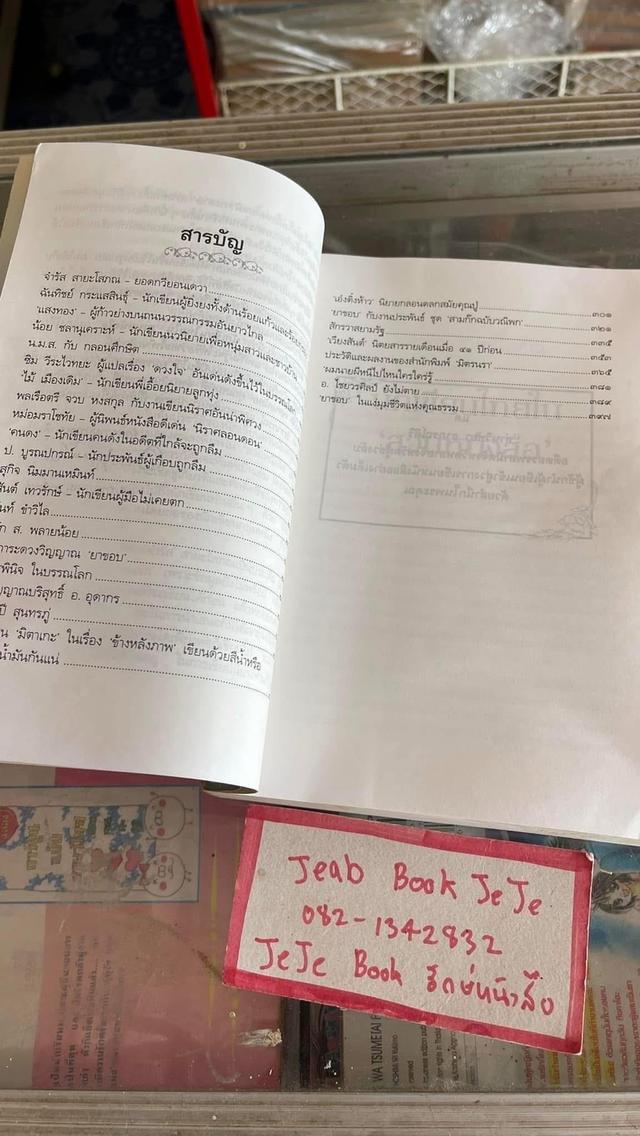 สารบัญ
จำรัส สายะโสภณ - ยอดกวียอนเดวา
ฉันทิชย์ กระแสสินธุ์ - นักเขียนผู้ยิ่งยงทั้งด้านร้อยแก้วและร้อยกรอง
'แสงทอง' - ผู้ก้าวย่างบนถนนวรรณกรรมอันยาวไกล
น้อย ชลานุเคราะห์ - นักเขียนนวนิยายเพื่อหนุ่มสาวและชาวบ้าน
น.ม.ส. กับ กลอนศึกษิต
ซิม วีระไวทยะ ผู้แปลเรื่อง 'ดวงใจ' อันเด่นดังขึ้นไว้ในบรรณโลก
'ไม้ เมืองเดิม' - นักเขียนพี่เอื้อยนิยายลูกทุ่ง
พลเรือตรี จวบ หงสกุล กับงานเขียนนิราศอันน่าพิศวง
หม่อมราโชทัย - ผู้นิพนธ์หนังสือดีเด่น 'นิราศลอนดอน'
'คนดง' - นักเขียนคนดังในอดีตที่ใกล้จะถูกลืม
ป. บูรณปกรณ์ - นักประพันธ์ผู้เกือบถูกลืม
สุกิจ นิมมานเหมินท์
สันต์ เทวรักษ์ - นักเขียนผู้มือไม่เคยตก
นท์ ขำวิไล
ส. พลายน้อย
ภาระดวงวิญญาณ 'ยาขอบ'
พินิจ ในบรรณโลก
ญญาณบริสุทธิ์ อ. อุดากร
ปี สุนทรภู่
น 'มิตาเกะ' ในเรื่อง 'ข้างหลังภาพ' เขียนด้วยสีน้ำหรือ
น้ำมันกันแน่
'เอ๋งติ้งห้าว' นิยายกลอนตลกสมัยคุณปู่ ๓๐๑
'ยาขอบ' กับงานประพันธ์ ชุด 'สามก๊กฉบับวณิพก' ๓๒๑
สักรวาสยามรัฐ ๓๓๕
'เวียงสันต์' นิตยสารรายเดือนเมื่อ ๔๑ ปีก่อน ๓๕๓
ประวัติและผลงานของสำนักพิมพ์ 'มิตรนรา' ๓๖๕
'ผมนายผีหนีไปไหนใครใคร่รู้ ๓๘๑
อ. ไชยวรศิลป์ ยังไม่ตาย ๓๘๙
'ยาขอบ' ในแง่มุมชีวิตแห่งคุณธรรม ๓๙๗
Jeab Book JeJe
082-1342832
JeJe Book รักษ์หนังสือ